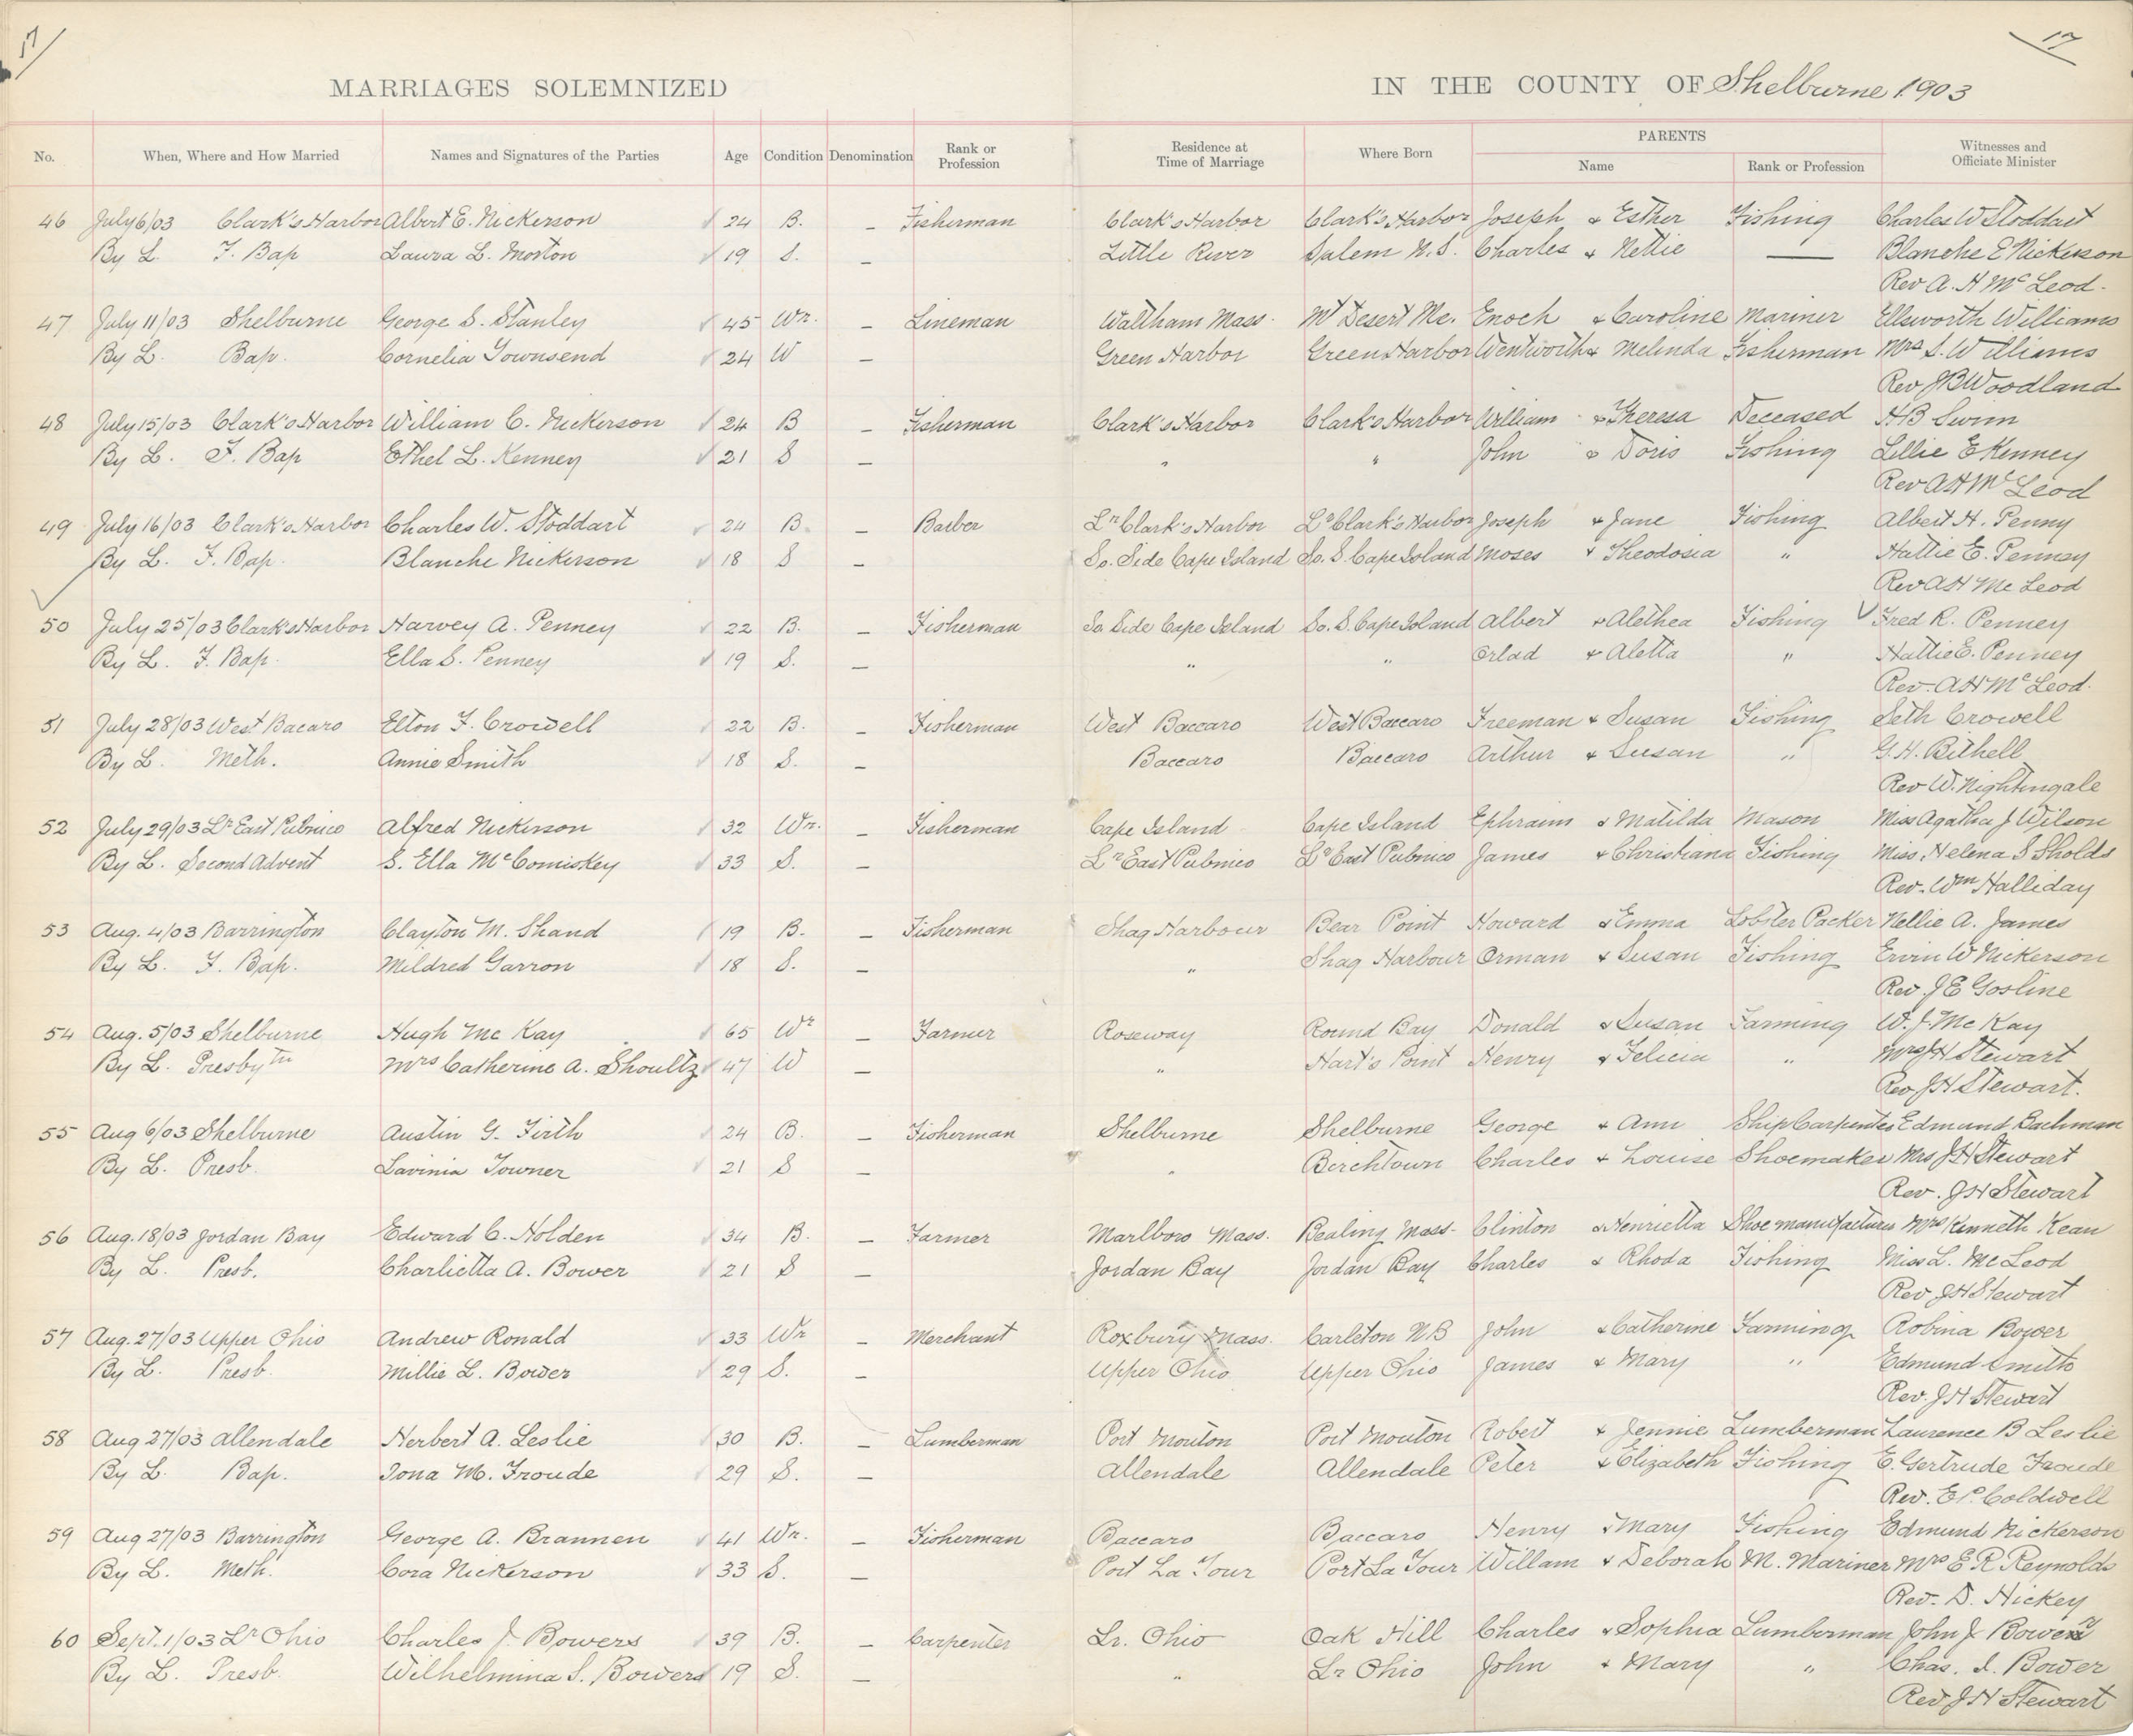 17 17
MARRIAGES SOLEMNIZED IN THE COUNTY OF Shelburne 1903
No. When, Where and How Married Names and Signatures of the Parties Age Condition Denomination Rank or Profession Residence at Time of Marriage Where Born PARENTS Name Rank or Profession Witnesses and Officiate Minister
46 July 6/03 Clark's Harbor Albert E. Nickerson 24 B. – Fisherman Clark's Harbor Clark's Harbor Joseph & Esther Fishing Charles W Stoddart
By L. F. Bap Laura L. Morton 19 S. – Little River Salem N.S. Charles & Nettie — Blanche E Nickerson
Rev A. H McLeod.
47 July 11/03 Shelburne George S. Stanley 45 Wr. – Lineman Waltham Mass. Mt Desert Me. Enoch & Caroline Mariner Ellsworth Williams
By L. Bap. Cornelia Townsend 24 W – Green Harbor Green Harbor Wentworth & Melinda Fisherman Mrs S. Williams
Rev JB Woodland
48 July 15/03 Clark's Harbor William C. Nickerson 24 B – Fisherman Clark's Harbor Clark's Harbor William & Theresa Deceased HB Swim
By L. F. Bap Ethel L. Kenney 21 S – " " John & Doris Fishing Lillie E Kenney
Rev AH McLeod
49 July 16/03 Clark's Harbor Charles W. Stoddart 24 B. – Barber Lr Clark's Harbor Lr Clark's Harbor Joseph & Jane Fishing Albert H. Penny
By L. F. Bap. Blanche Nickerson 18 S – So. Side Cape Island So. S. Cape Island Moses & Theodosia " Hattie E. Penney
Rev AH McLeod
50 July 25/03 Clark's Harbor Harvey A. Penney 22 B. – Fisherman So Side Cape Island So. S. Cape Island Albert & Alethea Fishing Fred R. Penney
By L. F. Bap. Ella S. Penney 19 S. – " " Orlad & Aletta " Hattie E. Penney
Rev. AH McLeod.
51 July 28/03 West Bacaro Elton F. Crowell 22 B. – Fisherman West Baccaro West Baccaro Freeman & Susan Fishing Seth Crowell
By L. Meth. Annie Smith 18 S. – Baccaro Baccaro Arthur & Susan " G. H. Bithell
Rev W. Nightingale
52 July 29/03 Lr East Pubnico Alfred Nickerson 32 Wr. – Fisherman Cape Island Cape Island Ephraim & Matilda Mason Miss Agatha J Wilson
By L. Second Advent S. Ella McComiskey 33 S. – Lr East Pubnico Lr East Pubnico James & Christiana Fishing Miss. Helena S Sholds
Rev. Wm Halliday
53 Aug. 4/03 Barrington Clayton M. Shand 19 B. – Fisherman Shag Harbour Bear Point Howard & Emma Lobster Packer Nellie A. James
By L. F. Bap. Mildred Garron 18 S. – " Shag Harbour Orman & Susan Fishing Ervin W Nickerson
Rev. J E Gosline
54 Aug. 5/03 Shelburne Hugh McKay 65 Wr – Farmer Roseway Round Bay Donald & Susan Farming W. J. McKay
By L. Presbytn Mrs Catherine A. Shoultz 47 W – " Hart's Point Henry & Felicia " Mrs JH Stewart
Rev JH Stewart.
55 Aug 6/03 Shelburne Austin G. Firth 24 B. – Fisherman Shelburne Shelburne George & Ann Ship Carpenter Edmund Bachman
By L. Presb. Lavinia Towner 21 S – " Birchtown Charles & Louise Shoemaker Mrs JH Stewart
Rev. JH Stewart
56 Aug. 18/03 Jordan Bay Edward C. Holden 34 B. – Farmer Marlboro Mass. Mass. Clinton & Henrietta Shoe manufacturer Mrs Kenneth Kean
By L. Presb. Charlietta A. Bower 21 S – Jordan Bay Jordan Bay Charles & Rhoda Fishing Miss L. McLeod
Rev JH Stewart
57 Aug. 27/03 Upper Ohio Andrew Ronald 33 Wr – Merchant Roxbury Mass. Carleton NB John & Catherine Farming Robina Bower
By L. Presb. Millie L. Bower 29 S. – Upper Ohio Upper Ohio James & Mary " Edmund Smith
Rev. JH Stewart
58 Aug 27/03 Allendale Herbert A. Leslie 30 B. – Lumberman Port Mouton Port Mouton Robert & Jennie Lumberman Laurence B Leslie
By L. Bap. Iona M. Froude 29 S. – Allendale Allendale Peter & Elizabeth Fishing E. Gertrude Froude
Rev. E P. Coldwell
59 Aug 27/03 Barrington George A. Brannen 41 Wr. – Fisherman Baccaro Baccaro Henry & Mary Fishing Edmund Nickerson
By L. Meth. Cora Nickerson 33 S. – Port La Tour Port La Tour Willam & Deborah M. Mariner Mrs E R Reynolds
Rev. D. Hickey
60 Sept. 1/03 Lr Ohio Charles J. Bowers 39 B. – Carpenter Lr. Ohio Oak Hill Charles & Sophia Lumberman John J Bower
By L. Presb. Wilhelmina S. Bowers 19 S. – " Lr Ohio John & Mary " Chas. I. Bower
Rev JH Stewart